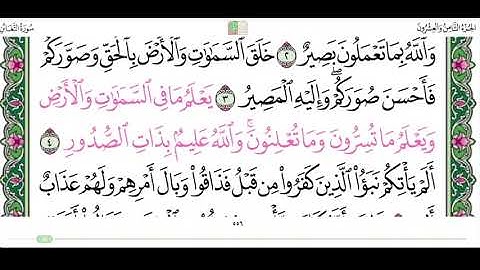 الجزء الثامن والعشرون
سورة التغابن
وَاللَّهُ بِمَا تَعْمَلُونَ بَصِيرٌ ٢ خَلَقَ السَّمَٰوَٰتِ وَالْأَرْضَ بِالْحَقِّ وَصَوَّرَكُمْ
فَأَحْسَنَ صُوَرَكُمْ ۖ وَإِلَيْهِ الْمَصِيرُ ٣ يَعْلَمُ مَا فِي السَّمَٰوَٰتِ وَالْأَرْضِ
وَيَعْلَمُ مَا تُسِرُّونَ وَمَا تُعْلِنُونَ ۚ وَاللَّهُ عَلِيمٌۢ بِذَاتِ الصُّدُورِ ٤
أَلَمْ يَأْتِكُمْ نَبَؤُا۟ الَّذِينَ كَفَرُوا۟ مِن قَبْلُ فَذَاقُوا۟ وَبَالَ أَمْرِهِمْ وَلَهُمْ عَذَابٌ
٥٥٦